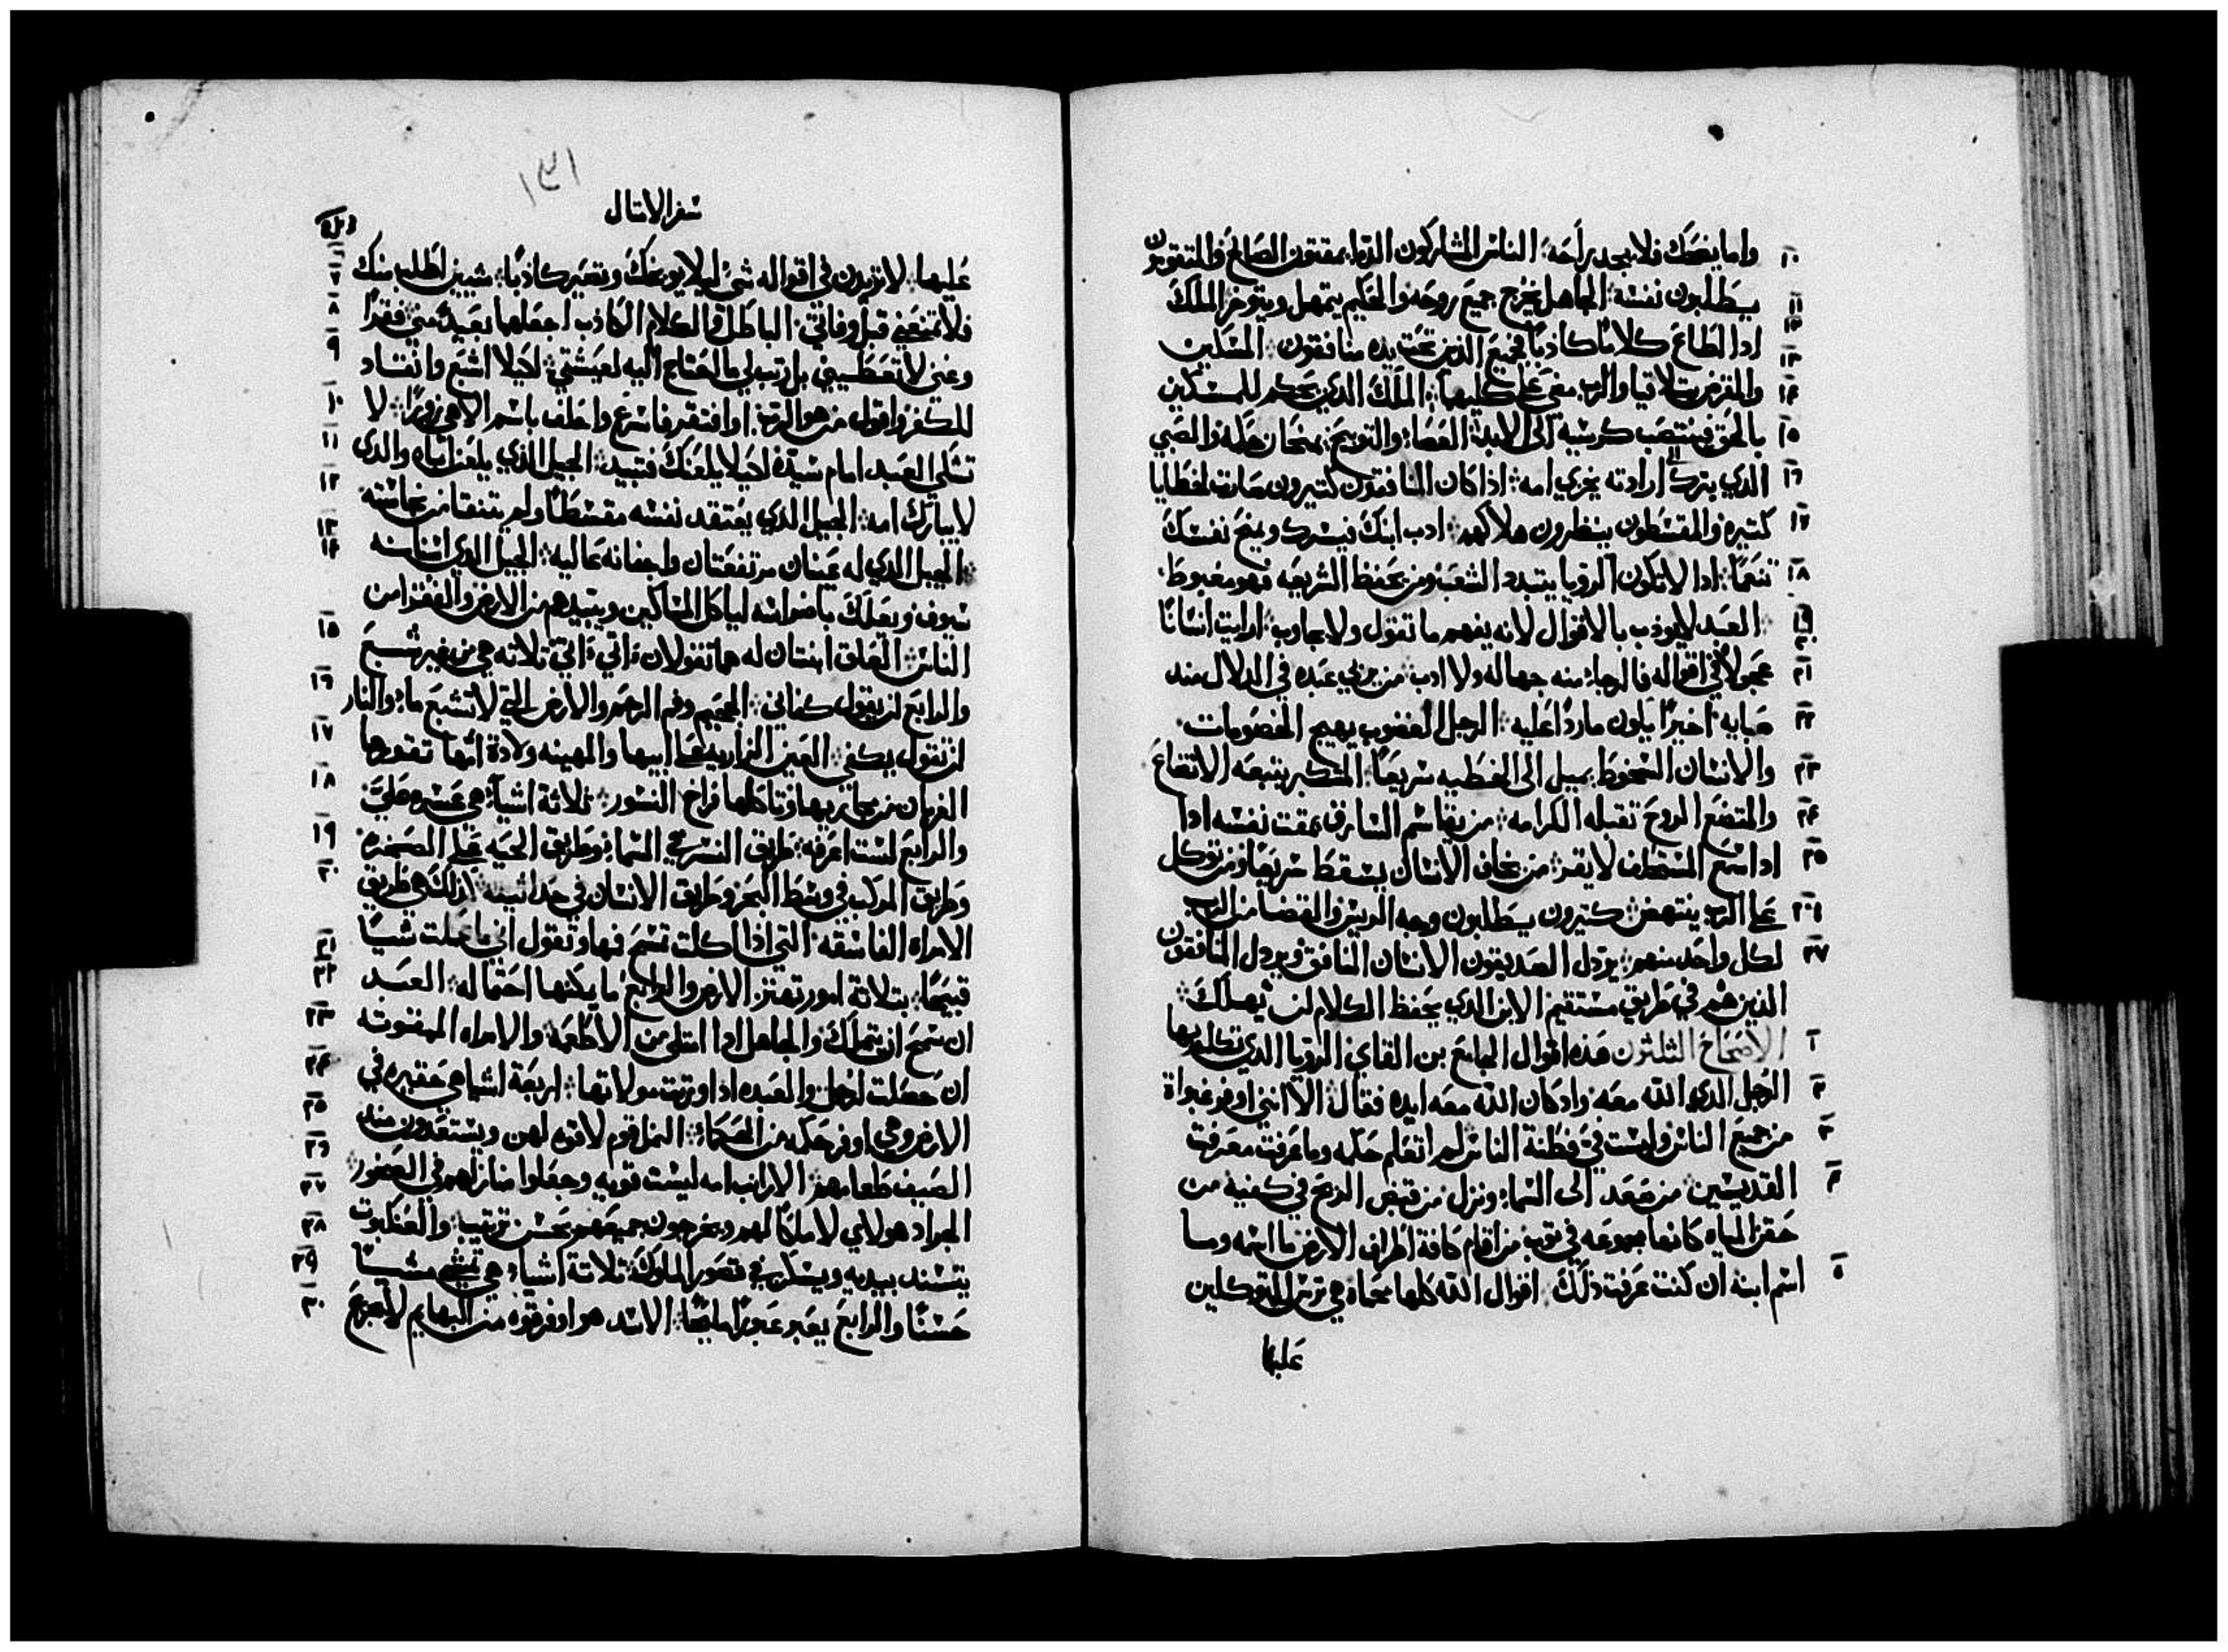 ١٠ واما يضحك فلا يجد راحه الناس المشاركون الدما يمقتون الصالح والمتقون
١١ يطلبون نفسه الجاهل يخرج جميع روحه والحكيم يتمهل ويتوخر الملك
١٢ ادا اطاع كلامًا كاذبًا فجميع الذين تحت يده منافقون المسكين
١٣ والمقرض تلاقيا والرب مضي على كليهما الملك الذي يحكم للمسكين
١٤ بالحق فينتصب كرسيه الى الابد العصا والتوبيخ يمنحان حكمه والصبي
١٥ الذي يترك ارادته يخزي امه اذا كان المنافقون كتيرون صارت الخطايا
١٦ كتيره والمقسطون ينظرون هلاكهم ادب ابنك فيسرك ويمنح نفسك
١٧ تنعمًا ادا لا تكون الرويا يتبدد الشعب ومن يحفظ الشريعه فهو مغبوط
١٨ العبد لا يودب بالاقوال لانه يفهم ما تقول ولا يجاوب ارايت انسانًا
١٩ ٢٠ عجولاً في اقواله فالرجاء منه جهاله ولا ادب من يربي عبده في الدلال مند
٢١ صبايه اخيرًا يكون ماردًا عليه الرجل الغضوب يهيج الخصومات
٢٢ والانسان السخوط يميل الى الخطيه سريعًا المتكبر يتبعه الاتضاع
٢٣ والمتضع الروح تقبله الكرامه من يقاسم السارق يمقت نفسه ادا
٢٤ ادا سمع المستحلف لا يقر من يخاف الانسان يسقط سريعًا ومن توكل
٢٥ على الرب ينتهض كتيرون يطلبون وجه الريس والقضا من الرب
٢٦ لكل واحد منهم يردل الصديقون الانسان المنافق ويردل المنافقون
٢٧ الذين هم في طريق مستقيم الابن الذي يحفظ الكلام لن يهلك
الاصحاح الثلثون هذه اقوال الجامع بن القاي الرويا الذي تكلم بها
٢ الرجل الذي الله معه واد كان الله معه ايده فقال الا انني اوفر غباوة
من جميع الناس وليست في فطنة الناس لم اتعلم حكمه وما عرفت معرفة
القديسين من صعد الى السماء ونزل من قبض الريح في كفيه من
حقن المياه كانها مجموعه في توب من اقام كافة اطراف الارض ما اسمه وما
٥ اسم ابنه ان كنت عرفت ذلك اقوال الله كلها محماه هي ترس للمتوكلين
عليها
١٣١
سفر الامتال
عليها لا تزيدن في اقواله شي ليلا يوبخك وتصير كاذبًا شيين اطلب منك
٧ فلا تمنعني قبل وفاتي الباطل والكلام الكاذب اجعلهما بعيدًا مني فقرًا
٨ وغنى لا تعطيني بل رتب لي ما احتاج اليه لعيشتي لكيلا اشبع وانقاد
٩ للكفر واقول من هو الرب او افتقر فاسرع واحلف باسم الاهي زورًا لا
١٠ تشكي العبد امام سيده لكيلا يلعنك فتبيد الجيل الذي يلعن اباه والذي
١١ لا يبارك امه الجيل الذي يعتقد نفسه مقسطًا ولم يتنقا من نجاسته
١٢ الجيل الذي له عينان مرتفعتان واجفانه عاليه الجيل الذي اسنانه
١٣ ١٤ سيوف ويعلك باضراسه لياكل المساكين ويبيدهم من الارض والفقرا من
١٥ الناس العلق ابنتان له هما تقولان اتي اتي ثلاثه هي من غير شبع
والرابع لن يقول كفاني الجحيم وفم الرحم والارض التي لا تشبع ماء والنار
١٦ لن تقول يكفي العين المزاريه على ابيها والمهينه ولادة امها تقورها
١٧ الغربان من مجاريها وتاكلها فراخ النسور ثلاثة اشياء هي عسره علي
١٨ والرابع لست اعرفه طريق النسر في السماء وطريق الحيه على الصخره
١٩ وطريق المركب في وسط البحر وطريق الانسان في حداثته كذلك هي طريق
٢٠ الامراه الفاسقه التي اذا اكلت تمسح فمها وتقول اني ما عملت شيئًا
٢١ قبيحًا بتلاتة امور تهتز الارض والرابع ما يمكنها احتماله العبد
٢٢ ان سمح ان يتملك والجاهل ادا امتلى من الاطعمه والامراه الممقوته
٢٣ ان حصلت لرجل والعبده ادا ورتت مولاتها اربعة اشيا هي حقيره في
٢٤ الارض وهي اوفر حكمه من الحكماء النمل قوم لا قوه لهن ويستعدون مند
٢٥ الصيف طعامهم الارانب امه ليست قويه وجعلوا منازلهم في الصخور
٢٦ ٢٧ الجراد هولاي لا ملكًا لهم ويخرجون جميعهم بحسن ترتيب والعنكبوت
٢٨ يتسند بيديه ويسكن في قصور الملوك ثلاتة اشياء هي تمشي مشيًا
٢٩ حسنًا والرابع يعبر عبورًا مليحًا الاسد هو اوفر قوه من البهايم لا يجزع
٣٠